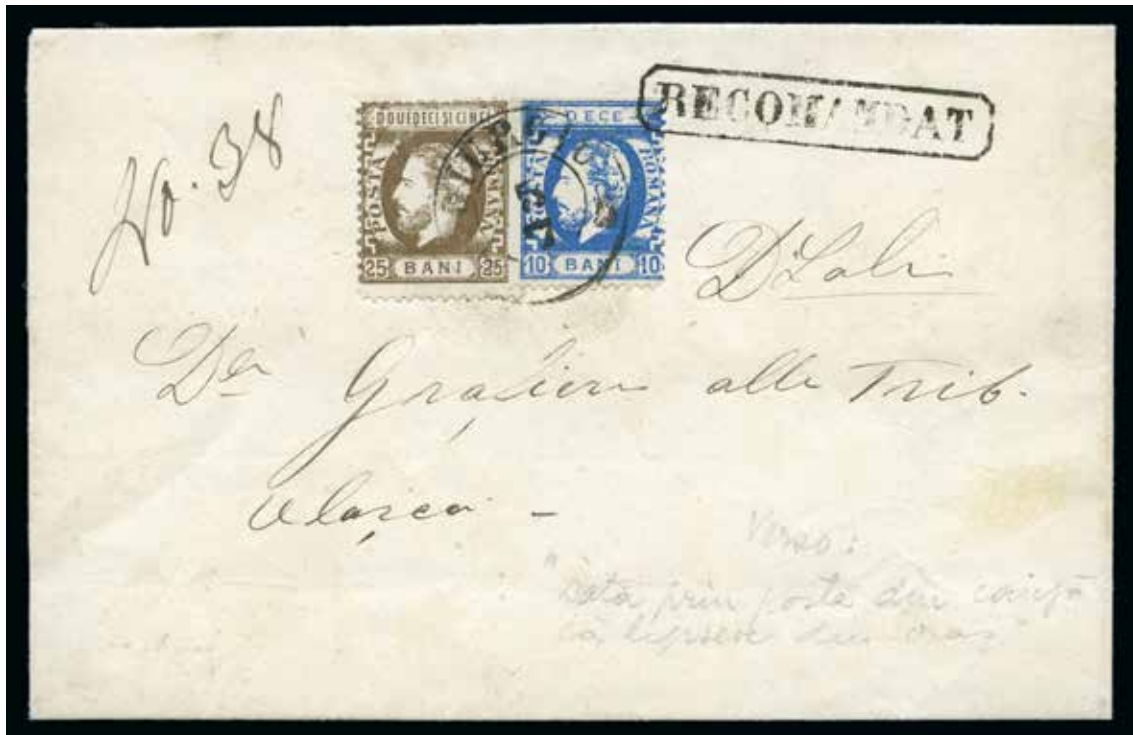 No. 38
RECOMANDAT
DOUEDECI SI CINCI
POSTA ROMANA
25 BANI 25
GIURGIU
DECE
POSTA ROMANA
10 BANI 10
Der Grafieru alle Trib.
Vlasca -
Verso:
"Data prin posta din
că lipsesc din oraș"